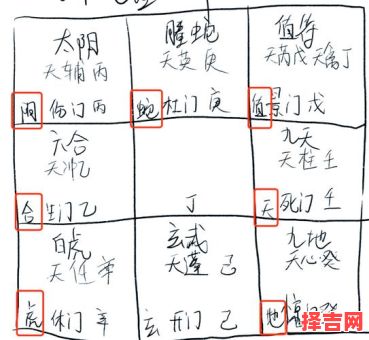 太阴
天辅 丙
阴 伤门 丙
螣蛇
天英 庚
蛇 杜门 庚
值符
天芮戊 天禽丁
值 景门 戊
六合
天冲乙
合 生门 乙
丁
九天
天柱 壬
天 死门 壬
白虎
天任 辛
虎 休门 辛
玄武
天蓬 己
玄 开门 己
九地
天心癸
地
择吉网